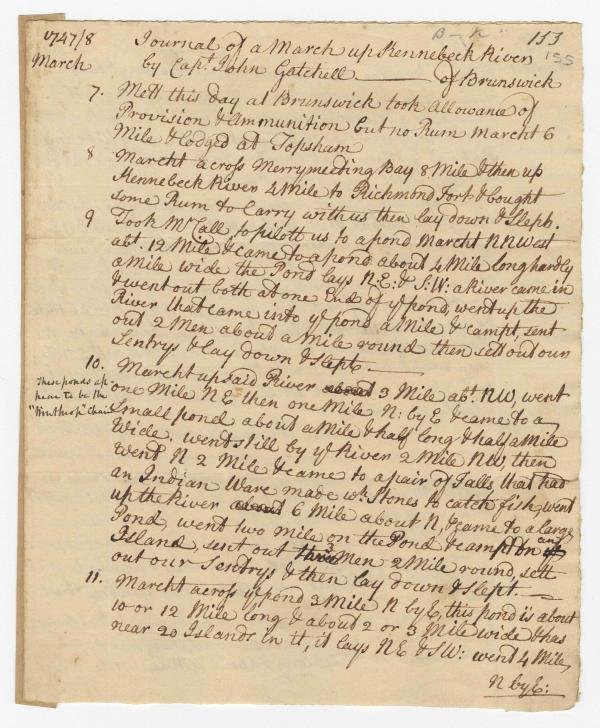 B–K 113
155
1747/8 Journal of a March up Kennebeck River
March by Capt. John Gatchell —— of Brunswick
7. Mett this day at Brunswick took Allowance of
Provision & Ammunition but no Rum Marcht 6
Mile & lodged at Topsham
8 Marcht across Merrymeeting Bay 8 Mile & then up
Kennebeck River 4 Mile to Richmond Fort & bought
some Rum to Carry with us then lay down & Slept.
9 Took Mr Call to pilott us to a pond Marcht NNWest
abt. 12 Mile & came to a pond about 4 Mile long hardly
a Mile wide the Pond lays N:E: & S:W: a River came in
& went out both at one End of ye pond, went up the
River that came into ye pond a Mile & campt, sent
out 2 Men about a Mile round then sett out our
Sentrys & lay down & Slept —
10. Marcht up said River about 3 Mile abt. NW, went
These ponds ap
pear to be the
"Winthrop" Chain
one Mile NE then one Mile N: by E & came to a
Small pond about a Mile & half long & half a Mile
Wide. went still by ye River 2 Mile NW, then
went N 2 Mile & came to a pair of Falls, that had
an Indian Ware made wth. Stones to catch fish, went
up the River about 6 Mile about N, & came to a large
Pond, went two Mile on the Pond & campt on an
Island, sent out 3 Men 2 Mile round, sett
out our Sentrys & then lay down & Slept. —
11. Marcht across ye pond 3 Mile N by E, this pond is about
10 or 12 Mile long & about 2 or 3 Mile wide & has
near 20 Islands in it, it lays NE & SW: went 4 Mile,
N by E: